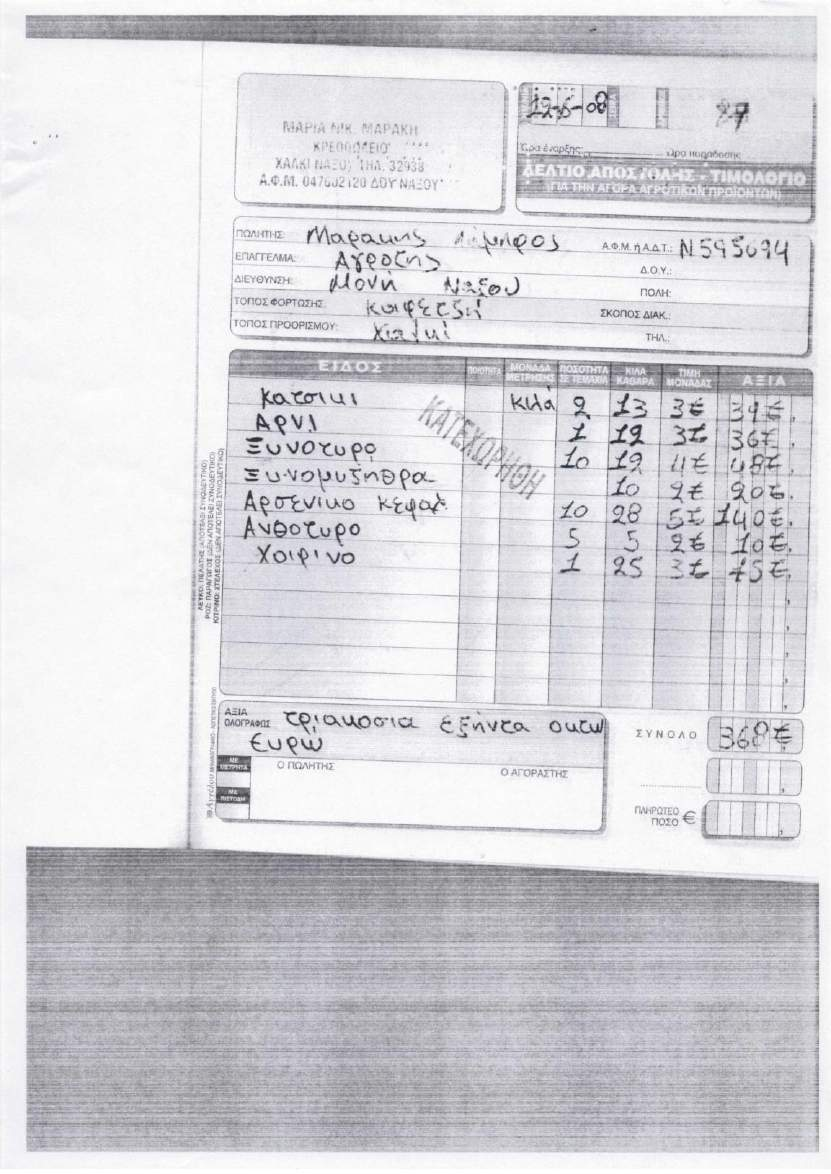 ΜΑΡΙΑ ΝΙΚ. ΜΑΡΑΚΗ
ΚΡΕΟΠΩΛΕΙΟ
ΧΑΛΚΙ ΝΑΞΟΥ ΤΗΛ. 32938
Α.Φ.Μ. 047602120 ΔΟΥ ΝΑΞΟΥ
12-6-08 27
Ώρα έναρξης: Ώρα παράδοσης
ΔΕΛΤΙΟ ΑΠΟΣΤΟΛΗΣ - ΤΙΜΟΛΟΓΙΟ
(ΓΙΑ ΤΗΝ ΑΓΟΡΑ ΑΓΡΟΤΙΚΩΝ ΠΡΟΪΟΝΤΩΝ)
ΠΩΛΗΤΗΣ: Μαρακης Α.Φ.Μ. ή Α.Δ.Τ.: Ν595694
ΕΠΑΓΓΕΛΜΑ: Αγροτης Δ.Ο.Υ.:
ΔΙΕΥΘΥΝΣΗ: Μονή Ναξου ΠΟΛΗ:
ΤΟΠΟΣ ΦΟΡΤΩΣΗΣ: ΣΚΟΠΟΣ ΔΙΑΚ.:
ΤΟΠΟΣ ΠΡΟΟΡΙΣΜΟΥ: Χαλκί ΤΗΛ.:
ΕΙΔΟΣ ΠΟΙΟΤΗΤΑ ΜΟΝΑΔΑ ΜΕΤΡΗΣΗΣ ΠΟΣΟΤΗΤΑ ΣΕ ΤΕΜΑΧΙΑ ΚΙΛΑ ΚΑΘΑΡΑ ΤΙΜΗ ΜΟΝΑΔΑΣ ΑΞΙΑ
Κατσικι κιλά 2 13 3€ 39€
ΑΡΝΙ 1 12 3€ 36€
Ξυνοτυρο 10 12 4€ 48€
Ξυνομυζηθρα 10 2€ 20€
Αρσενικο κεφαλ 10 28 5€ 140€
Ανθοτυρο 5 5 2€ 10€
Χοιρινο 1 25 3€ 75€
ΚΑΤΕΧΩΡΗΘΗ
ΛΕΥΚΟ: ΠΕΛΑΤΗΣ (ΑΠΟΤΕΛΕΙ ΣΥΝΟΔΕΥΤΙΚΟ)
ΡΟΖ: ΠΑΡΑΓΩΓΟΣ (ΔΕΝ ΑΠΟΤΕΛΕΙ ΣΥΝΟΔΕΥΤΙΚΟ)
ΚΙΤΡΙΝΟ: ΣΤΕΛΕΧΟΣ (ΔΕΝ ΑΠΟΤΕΛΕΙ ΣΥΝΟΔΕΥΤΙΚΟ)
ΑΞΙΑ ΟΛΟΓΡΑΦΩΣ τριακοσια εξήντα οκτω
Ευρώ
ΣΥΝΟΛΟ 368€
ΜΕ ΜΕΤΡΗΤΑ Ο ΠΩΛΗΤΗΣ Ο ΑΓΟΡΑΣΤΗΣ
ΜΕ ΠΙΣΤΩΣΗ
ΠΛΗΡΩΤΕΟ ΠΟΣΟ €